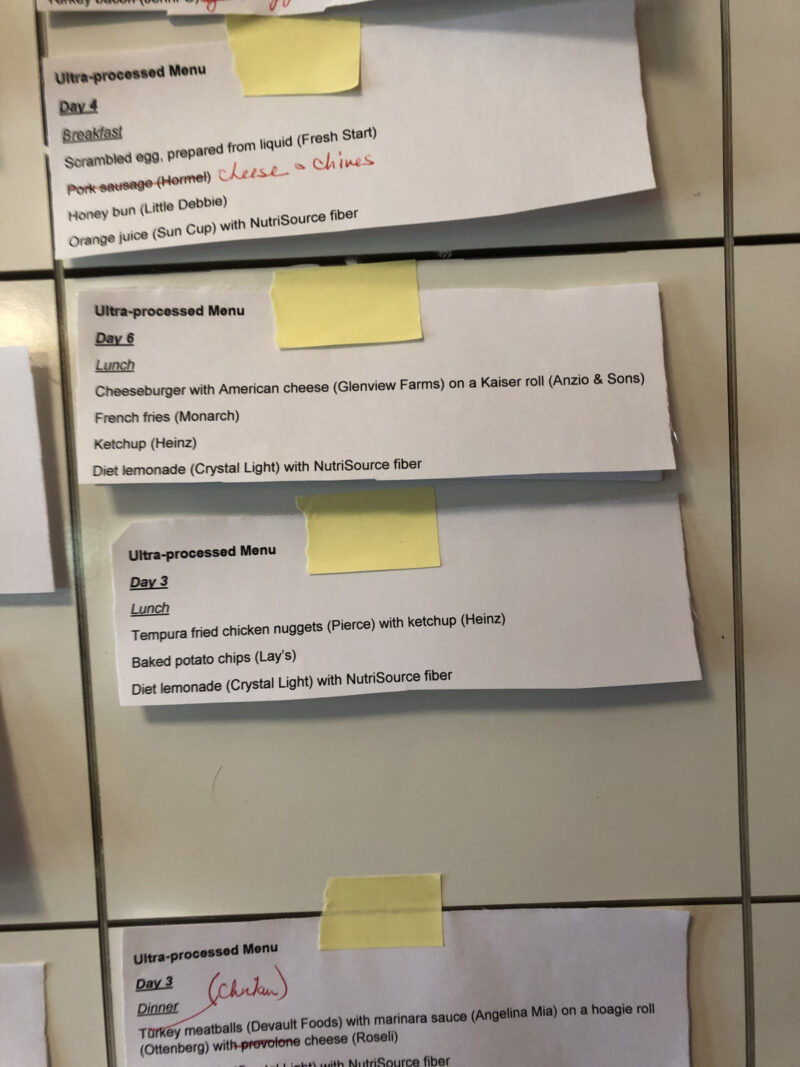 Turkey bacon
Ultra-processed Menu
Day 4
Breakfast
Scrambled egg, prepared from liquid (Fresh Start)
Pork sausage (Hormel) cheese & chives
Honey bun (Little Debbie)
Orange juice (Sun Cup) with NutriSource fiber
Ultra-processed Menu
Day 6
Lunch
Cheeseburger with American cheese (Glenview Farms) on a Kaiser roll (Anzio & Sons)
French fries (Monarch)
Ketchup (Heinz)
Diet lemonade (Crystal Light) with NutriSource fiber
Ultra-processed Menu
Day 3
Lunch
Tempura fried chicken nuggets (Pierce) with ketchup (Heinz)
Baked potato chips (Lay's)
Diet lemonade (Crystal Light) with NutriSource fiber
Ultra-processed Menu
Day 3
Dinner
Turkey meatballs (Devault Foods) with marinara sauce (Angelina Mia) on a hoagie roll
(Ottenberg) with provolone cheese (Roseli)
Light) with NutriSource fiber